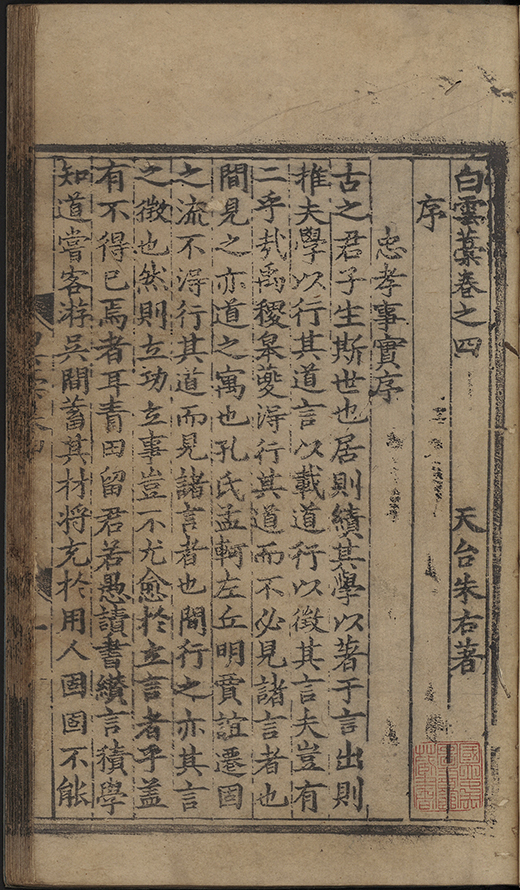 白雲藁卷之四 天台朱右著
序
忠孝事實序
古之君子生斯世也居則績其學以著于言出則
推夫學以行其道言以載道行以徵其言夫豈有
二乎㢤禹稷皋夔淂行其道而不必見諸言者也
間見之亦道之寓也孔氏孟軻左丘明賈誼遷固
之流不淂行其道而見諸言者也間行之亦其言
之徵也然則立功立事豈不尤愈於立言者乎盖
有不得已焉者耳青田留君若愚讀書纘言積學
知道嘗客游吳間蓄其材將充於用人固固不能